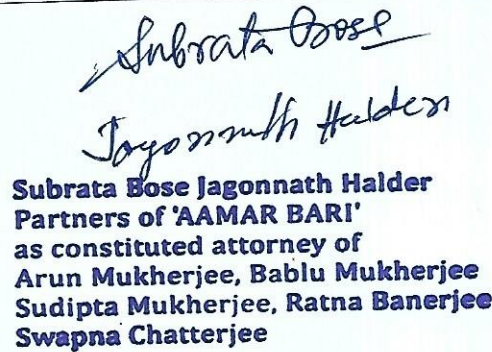 Subrata Bose
Jagonnath Halder
Subrata Bose Jagonnath Halder
Partners of 'AAMAR BARI'
as constituted attorney of
Arun Mukherjee, Bablu Mukherjee
Sudipta Mukherjee, Ratna Banerjee
Swapna Chatterjee